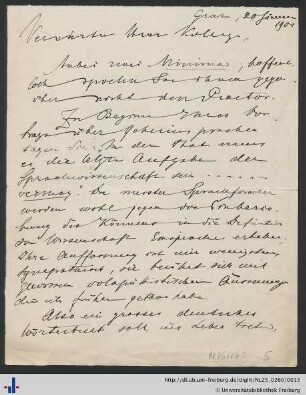 Graz, 20 Jänner
1901
Verehrter Herr Kollege,
Anbei mein Minimum, hoffent-
lich spielen Sie ihnen gegen-
über nicht den Praetor.
Zu Beginn Ihres Vor-
trags über
sagen Sie: In der That muss
es die letzte Aufgabe der
Sprachwissenschaft sein - - - - - -
vermag. Die meisten Sprachforscher
werden wohl gegen das
des Könnens in die Definition
der Wissenschaft Einsprache erheben.
Ihre Auffassung ist mir wenigstens
sympathisch, sie berührt sich mit
gewissen volapükistischen Äusserungen
die ich früher gethan habe.
Also ein grosses deutsches
Wörterbuch soll ins Leben treten,
NL25/260 5
http://dl.ub.uni-freiburg.de/diglit/NL25_0260/0013
© Universitätsbibliothek Freiburg